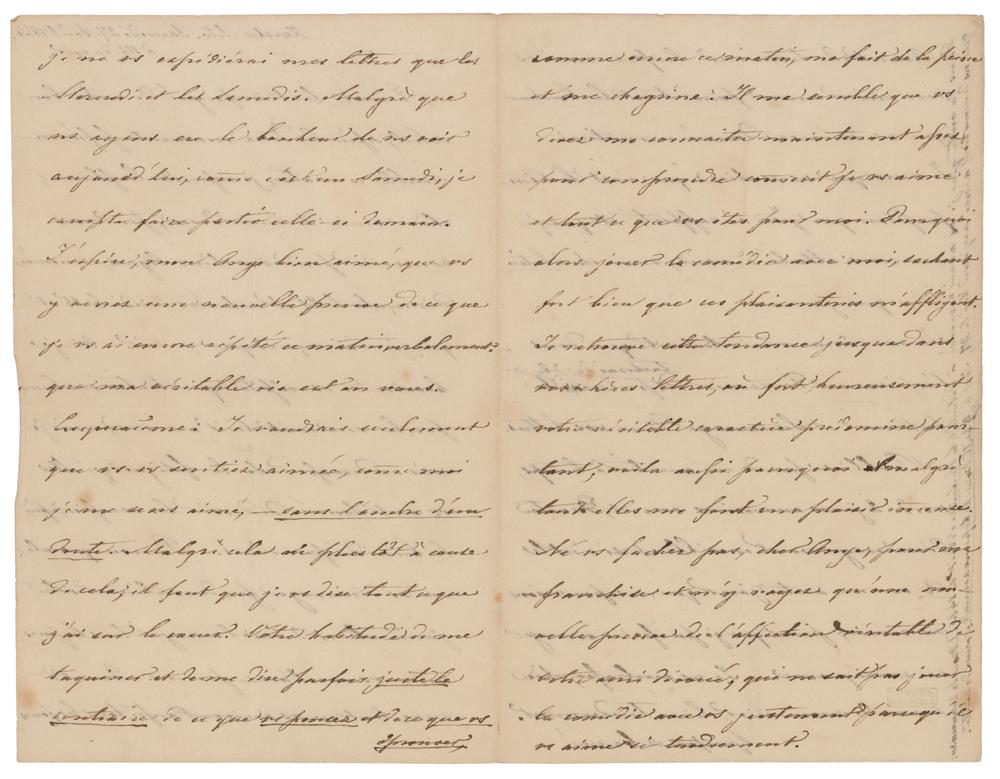 je ne vs expédierai mes lettres que les
Mercredi et les Samedis. Malgré que
ns ayons eu le bonheur de ns voir
aujourd'hui, come c'est un Samedi, je
compte faire partir celle-ci demain.
J'espère, mon Ange bien aimé, que vs
y verrez une nouvelle preuve de ce que
je vs ai encore répété ce matin verbalement:
que ma véritable vie est en vous.
Je voudrais seulement
que vs vs sentiez aimée, come moi
je me sens aimé, — sans l'ombre d'un
doute. Malgré cela ou plus tôt à cause
de cela, il faut que je vs dise tout ce que
j'ai sur le coeur. Votre habitude de me
taquiner et de me dire parfois juste le
contraire de ce que vs pensez et de ce que vs
éprouvez,
comme encore ce matin, me fait de la peine
et me chagrine. Il me semble que vs
devez me connaitre maintenant assez
pour comprendre comment je vs aime
et tout ce que vs êtes pour moi. Pourquoi
alors jouer la comédie avec moi, sachant
fort bien que ces plaisanteries m'affligent.
Je retrouve cette tendance jusque dans
vos chères lettres, où fort heureusement
votre véritable caractère prédomine pour-
tant; voila aussi pourquoi malgré
tout elles me font un plaisir immense.
Ne vs fachez pas, cher Ange, pour ma
franchise et n'y voyez qu'une nou-
velle preuve de l'affection véritable de
votre ami dévoué, qui ne sait pas jouer
la comédie avec vs justement parce qu'il
vs aime si tendrement.